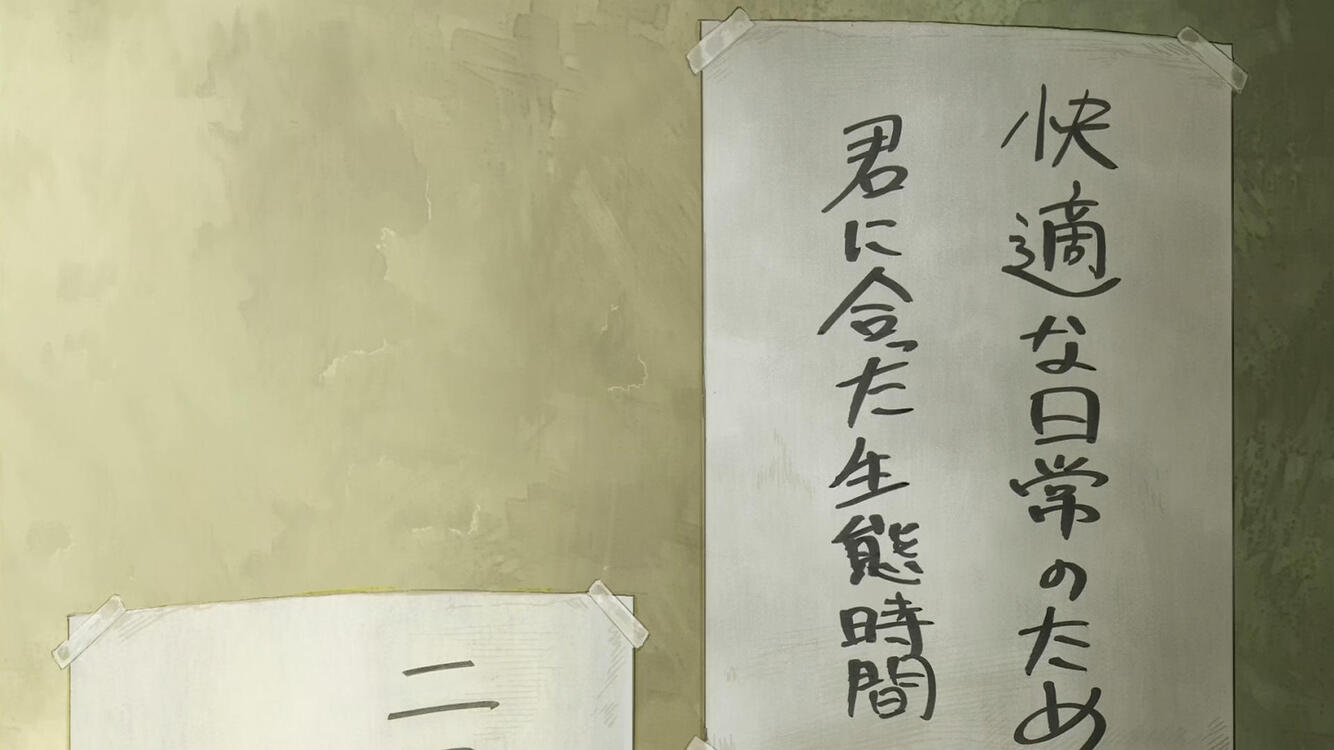 快適な日常のため
君に合った生態時間
二